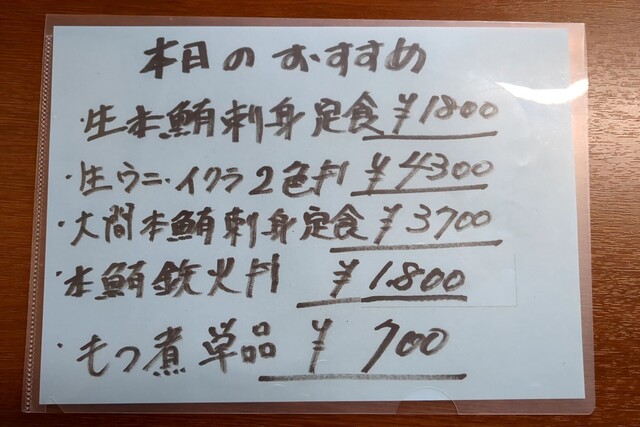 本日のおすすめ
・生本鮪刺身定食 ¥1800
・生ウニ・イクラ2色丼 ¥4300
・大間本鮪刺身定食 ¥3700
・本鮪鉄火丼 ¥1.800
・もつ煮単品 ¥700